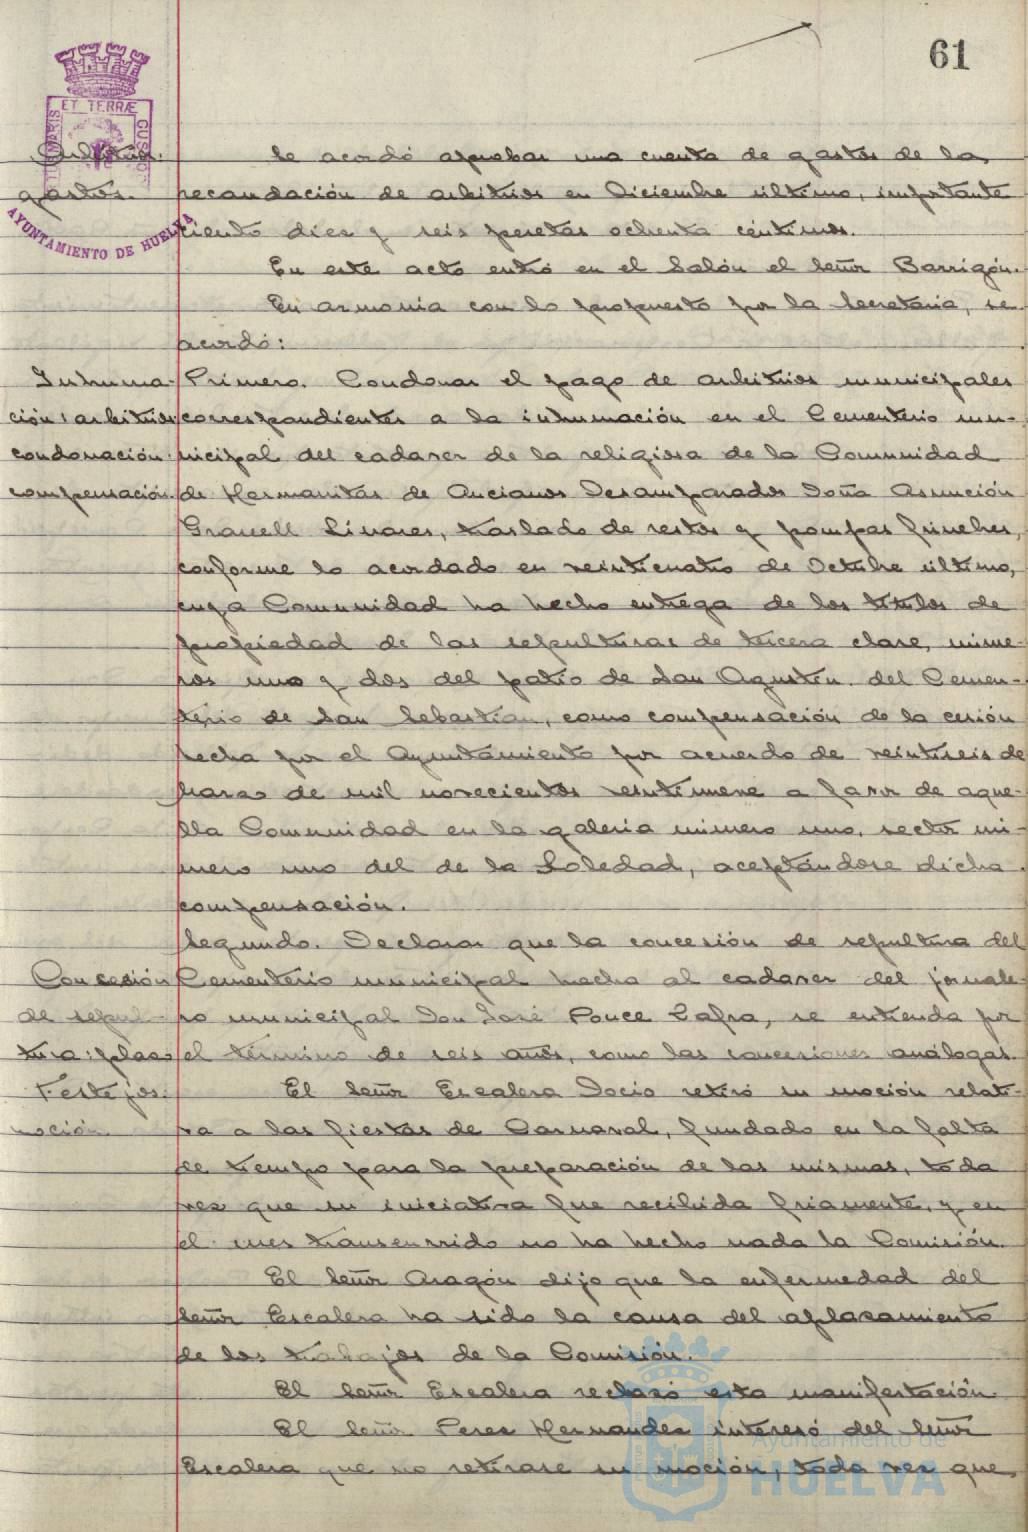 61
ET TERRÆ
AYUNTAMIENTO DE HUELVA
Arbitrios.
gastos.
Se acordó aprobar una cuenta de gastos de la
recaudación de arbitrios en Diciembre último, importante
ciento diez y seis pesetas ochenta céntimos.
En este acto entró en el Salón el Señor Barrigón.
En armonia con lo propuesto por la Secretaria, se
acordó:
Inhuma-
ción: arbitrios
condonación:
compensación.
Primero. Condonar el pago de arbitrios municipales
correspondientes a la inhumación en el Cementerio mu-
nicipal del cadaver de la religiosa de la Comunidad
de Hermanitas de Ancianos Desamparados Doña Asunción
Granell Linares, traslado de restos y pompas fúnebres,
conforme lo acordado en veinticuatro de Octubre último,
cuya Comunidad ha hecho entrega de los titulos de
propiedad de las sepulturas de tercera clase, núme-
ros uno y dos del patio de San Agustín del Cemen-
terio de San Sebastian, como compensación de la cesión
hecha por el Ayuntamiento por acuerdo de veintiseis de
marzo de mil novecientos veintinueve a favor de aque-
lla Comunidad en la galeria número uno, sector nú-
mero uno del de la Soledad, aceptándose dicha
compensación.
Segundo. Declarar que la concesión de sepultura del
Concesión
de sepul-
tura: plazo
Cementerio municipal hecha al cadaver del jornale-
ro municipal Don José Ponce Lafra, se entienda por
el término de seis años, como las concesiones análogas.
Festejos:
moción.
El Señor Escalera Docio retiró su moción relati-
va a las fiestas de Carnaval, fundado en la falta
de tiempo para la preparación de las mismas, toda
vez que su iniciativa fue recibida friamente, y en
el mes transcurrido no ha hecho nada la Comisión.
El Señor Aragón dijo que la enfermedad del
Señor Escalera ha sido la causa del aplazamiento
de los trabajos de la Comisión.
El Señor Escalera rechazó esta manifestación.
El Señor Perez Hernandez interesó del Señor
Escalera que no retirase su moción, toda vez que
Ayuntamiento de
HUELVA